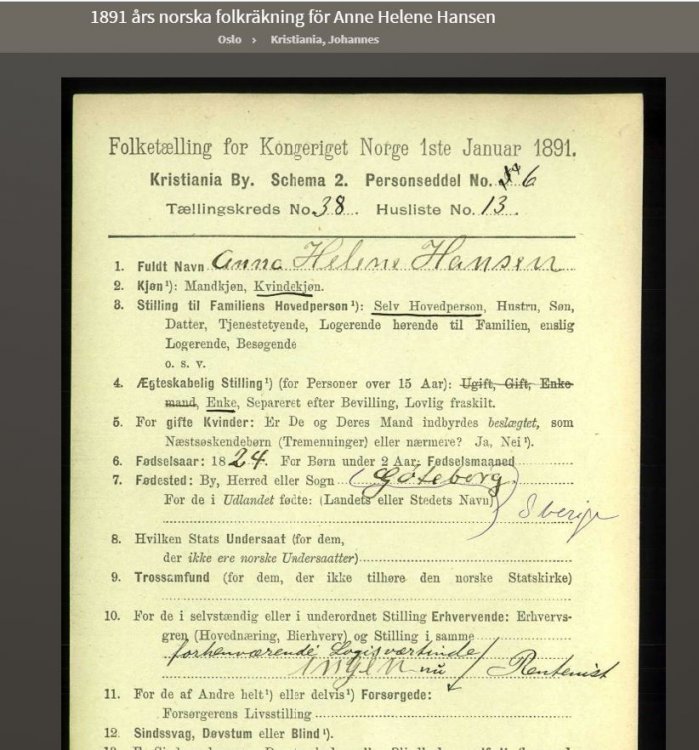 1891 års norska folkräkning för Anne Helene Hansen
Oslo › Kristiania, Johannes
Folketælling for Kongeriget Norge 1ste Januar 1891.
Kristiania By. Schema 2. Personseddel No. 6
Tællingskreds No. 38. Husliste No. 13.
1. Fuldt Navn Anna Helene Hansen
2. Kjøn¹): Mandkjøn, Kvindekjøn.
3. Stilling til Familiens Hovedperson¹): Selv Hovedperson, Hustru, Søn,
Datter, Tjenestetyende, Logerende hørende til Familien, enslig
Logerende, Besøgende
o. s. v.
4. Ægteskabelig Stilling¹) (for Personer over 15 Aar): Ugift, Gift, Enke-
mand, Enke, Separeret efter Bevilling, Lovlig fraskilt.
5. For gifte Kvinder: Er De og Deres Mand indbyrdes beslægtet, som
Næstsøskendebørn (Tremenninger) eller nærmere? Ja, Nei¹).
6. Fødselsaar: 1824. For Børn under 2 Aar: Fødselsmaaned
7. Fødested: By, Herred eller Sogn (Göteborg)
For de i Udlandet fødte: (Landets eller Stedets Navn) Sverige
8. Hvilken Stats Undersaat (for dem,
der ikke ere norske Undersaatter)
9. Trossamfund (for dem, der ikke tilhøre den norske Statskirke)
10. For de i selvstændig eller i underordnet Stilling Erhvervende: Erhvervs-
gren (Hovednæring, Bierhverv) og Stilling i samme
forhenværende Logisværtinde /
ingen nu / Rentenist
11. For de af Andre helt¹) eller delvis¹) Forsørgede:
Forsørgerens Livsstilling
12. Sindssvag, Døvstum eller Blind¹).